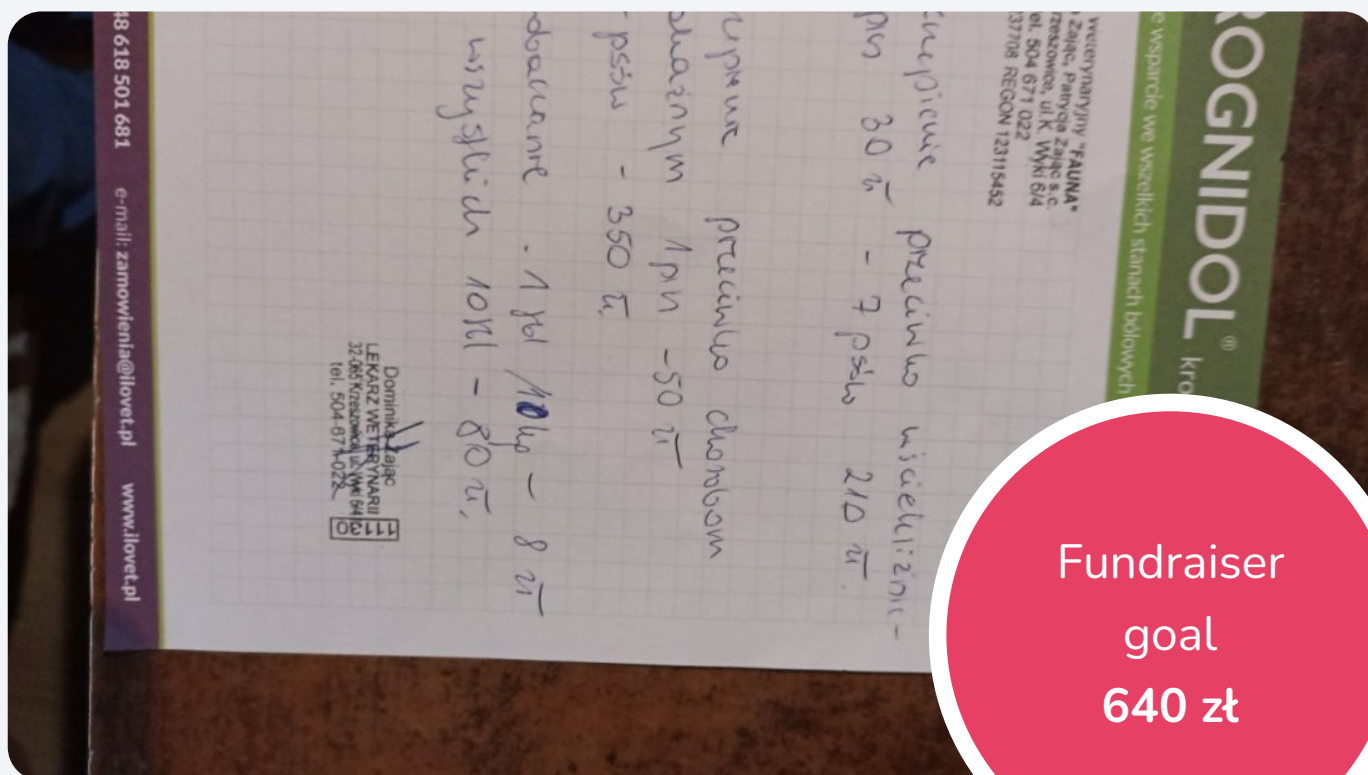 ROGNIDOL® kro
e wsparcie we wszelkich stanach bólowych
weterynaryjny "FAUNA"
Zając, Patrycja Zając s.c.
rzeszowice, ul. K. Wyki 6/4
el. 504 671 022
37708 REGON 123115452
przeciwko wściekliźnie -
30 zł - 7 psów 210 zł.
przeciwko chorobom
zakaźnym 1 psn - 50 zł
psów - 350 zł.
odbaczanie . 1 tbl / 10kg - 8 zł
wszystkich 10tbl - 80 zł.
Dominika Zając
LEKARZ WETERYNARII
32-065 Krzeszowice, ul. Wyki 6/4
tel. 504-671-022
48 618 501 681 e-mail: zamowienia@ilovet.pl www.ilovet.pl
Fundraiser
goal
640 zł